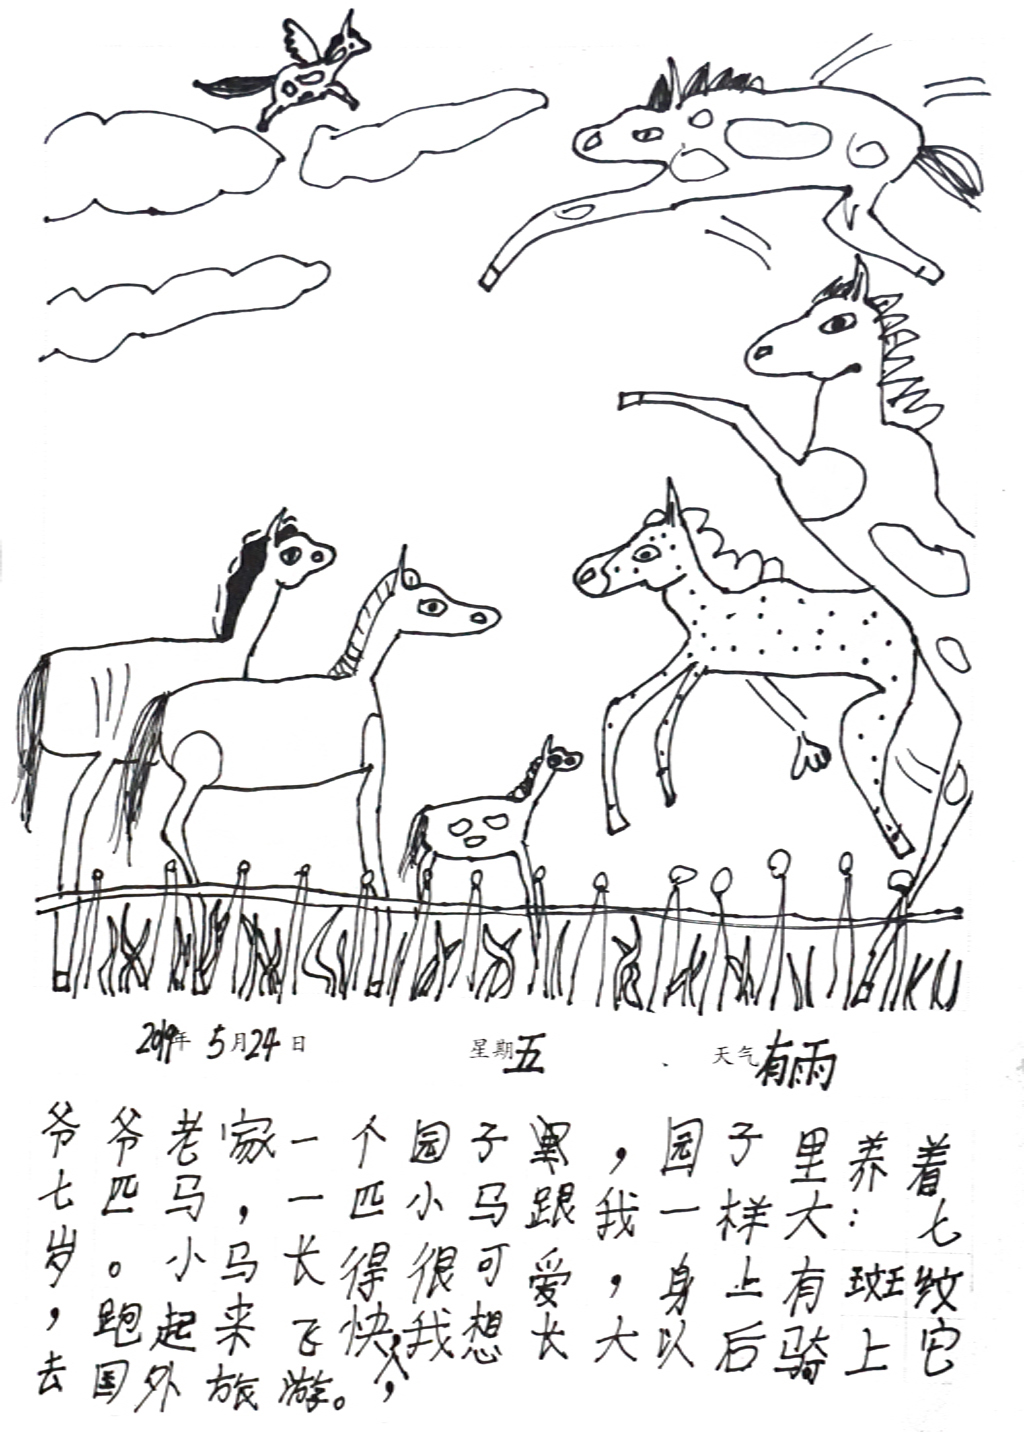 2019年 5月24日 星期五 天气有雨
爷爷老家一个园子里，园子里养着
七匹马，一匹小马跟我一样大：七
岁。小马长得很可爱，身上有斑纹
，跑起来飞快，我想长大以后骑上它
去国外旅游。